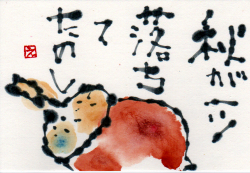 が
落ち
て
たのし